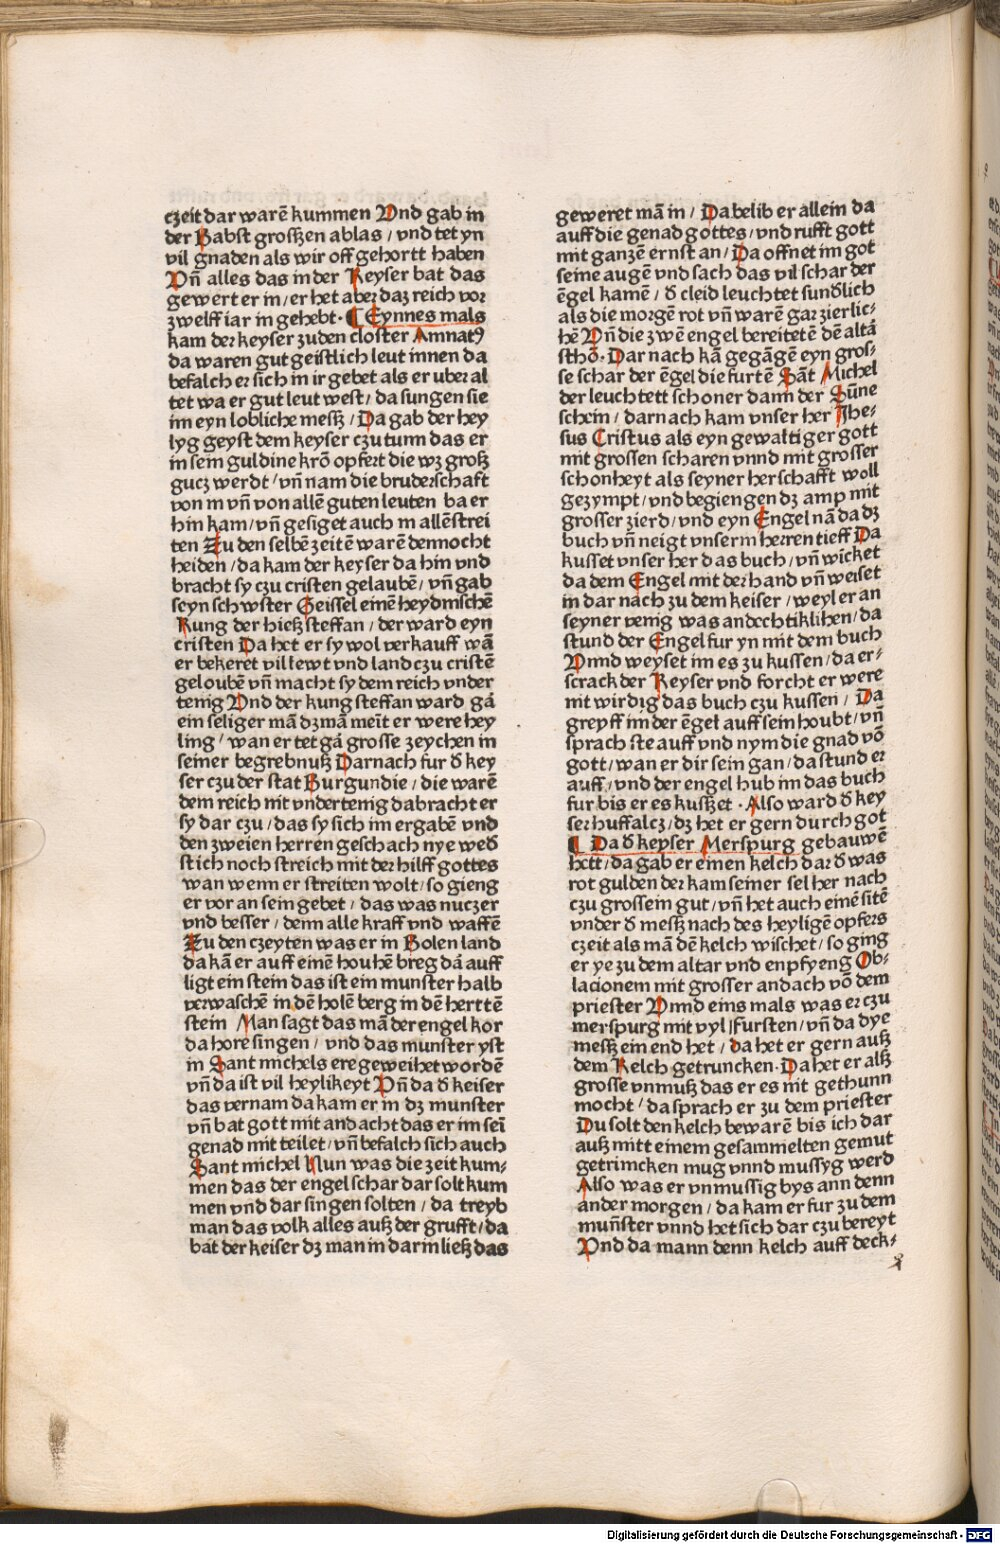 czeit dar warē kummen Vnd gab in
der Babst groſſzen ablas / vnd tet yn
vil gnaden als wir off gehortt haben
Vn̄ alles das in der Keyser bat das
gewert er in / er het aber daz reich vor
zwelff iar in gehebt · ¶ Eynnes mals
kam der keyser zu den closter Amnatꝰ
da waren gut geistlich leut innen da
befalch er sich in ir gebet als er uber al
tet wa er gut leut west / da sungen sie
im eyn lobliche mesſz / Da gab der hey
lyg geyst dem keyser czu tunn das er
in sein guldine krō opfert die wz groſz
gucz werdt / vn̄ nam die bruderschaft
von in vn̄ von allē guten leuten ba er
hin kam / vn̄ gesiget auch in allē strei
ten Zu den selbē zeitē warē dennocht
heiden / da kam der keyser da hin vnd
bracht sy czu cristen gelaubē / vn̄ gab
seyn schwster Geissel einē heydnischē
Kung der hieſz steffan / der ward eyn
cristen Da het er sy wol verkauff wā
er bekeret vil lewt vnd land czu cristē
geloubē vn̄ macht sy dem reich vnder
tenig Vnd der kung steffan ward gā
ein seliger mā dz mā meīt er were hey
ling / wan er tet gā grosse zeychen in
seiner begrebnuſz Darnach fur ď key
ser czu der stat Burgundie / die warē
dem reich nit vndertenig da bracht er
sy dar czu / das sy sich im ergabē vnd
den zweien herren geschach nye weď
stich noch streich mit der hilff gottes
wan wenn er streiten wolt / so gieng
er vor an sein gebet / das was nuczer
vnd besser / denn alle kraff vnd waffē
Zu den czeyten was er in Bolen land
da kā er auff einē houhē breg dā auff
ligt ein stein das ist ein munster halb
verwaschē in dē holē berg in dē herttē
stein Man sagt das mā der engel kor
da hore singen / vnd das munster yst
in Sant michels ere geweihet wordē
vn̄ da ist vil heylikeyt Vn̄ da ď keiser
das vernam da kam er in dz munster
vn̄ bat gott mit andacht das er im seī
genad mit teilet / vn̄ befalch sich auch
Sant michel Nun was die zeit kum⸗
men das der engel schar dar solt kum
men vnd dar singen solten / da treyb
man das volk alles auſz der grufft / da
bat der keiser dz man in dar in lieſz das
geweret mā in / Da belib er allein da
auff die genad gottes / vnd rufft gott
mit ganzē ernst an / Da offnet im got
seine augē vnd sach das vil schar der
ēgel kamē / ď cleid leuchtet sunďlich
als die morgē rot vn̄ warē gar zierlic⸗
hē Vn̄ die zwē engel bereitetē dē altā
sthō · Dar nach kā gegāgē eyn gros⸗
se schar der ēgel die furtē Sāt Michel
der leuchtett schoner dann der Sūne
schein / darnach kam vnser her Jhe⸗
sus Cristus als eyn gewaltiger gott
mit grossen scharen vnnd mit grosser
schonheyt als seyner herschafft woll
gezympt / vnd begiengen dz amp mit
grosser zierd / vnd eyn Engel nā da dz
buch vn̄ neigt vnserm herren tieff Da
kusset vnser her das buch / vn̄ wīcket
da dem Engel mit der hand vn̄ weiset
in dar nach zu dem keiser / weyl er an
seyner venig was andechtiklihen / da
stund der Engel fur yn mit dem buch
Vnnd weyset im es zu kussen / da er⸗
scrack der Keyser vnd forcht er were
nit wirdig das buch czu kussen / Da
greyff im der ēgel auff sein houbt / vn̄
sprach ste auff vnd nym die gnad vō
gott / wan er dir sein gan / da stund er
auff / vnd der engel hub im das buch
fur bis er es kusſzet · Also ward ď key
ser huffalcz / dz het er gern durch got
¶ Da ď keyser Merspurg gebauwē
hett / da gab er einen kelch dar ď was
rot gulden der kam seiner sel her nach
czu grossem gut / vn̄ het auch einē sitē
vnder ď mesſz nach des heyligē opfers
czeit als mā dē kelch wischet / so ging
er ye zu dem altar vnd enpfyeng Ob⸗
lacionem mit grosser andach vō dem
priester Vnnd eins mals was er czu
merspurg mit vyl Fursten / vn̄ da dye
mesſz ein end het / da het er gern auſz
dem Kelch getruncken · Da het er alſz
grosse vnmuſz das er es nit gethunn
mocht / da sprach er zu dem priester
Du solt den kelch bewarē bis ich dar
auſz mitt einem gesammelten gemut
getrincken mug vnnd mussyg werd
Also was er vnmussig bys ann denn
ander morgen / da kam er fur zu dem
mun̄ster vnnd het sich dar czu bereyt
Vnd da mann denn kelch auff deck⸗
Digitalisierung gefördert durch die Deutsche Forschungsgemeinschaft - DFG